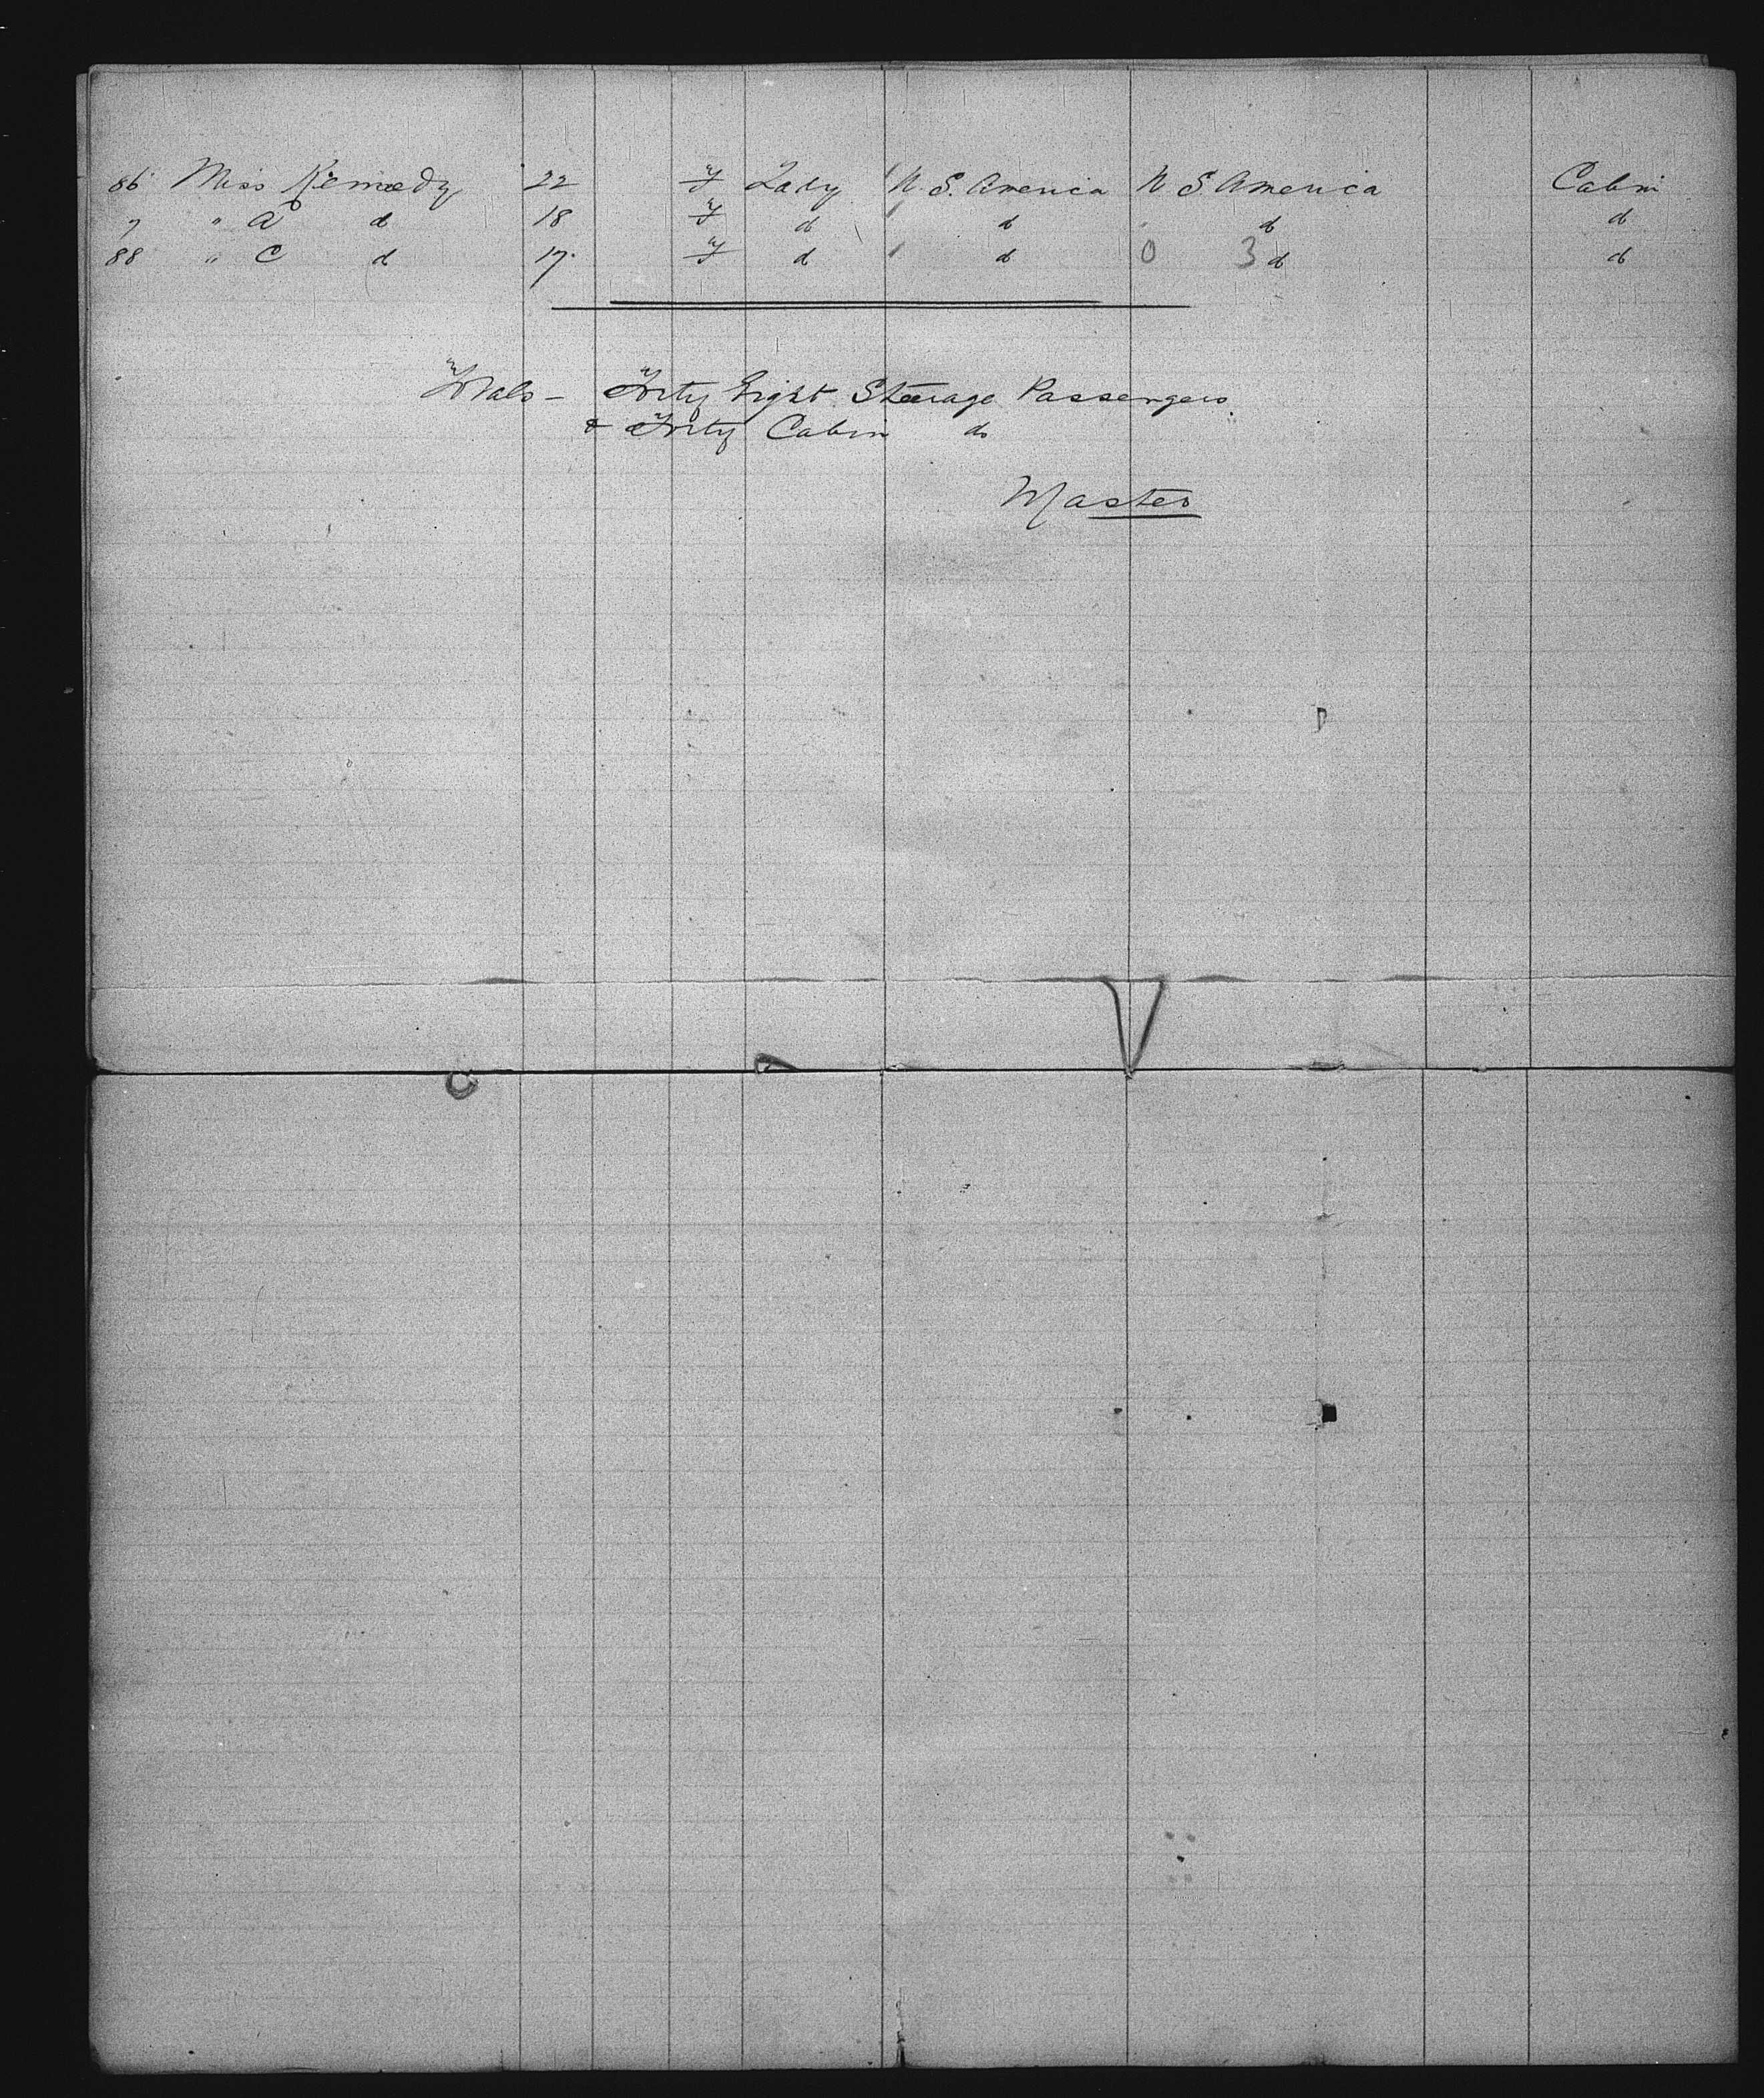 86 Miss Kennedy 22 F Lady U. S. America U S America Cabin
7 " A do 18 F do " do " do do
88 " C do 17 F do " do 0 3 do do
Totals - Forty Eight Steerage Passengers
& Forty Cabin do
Master